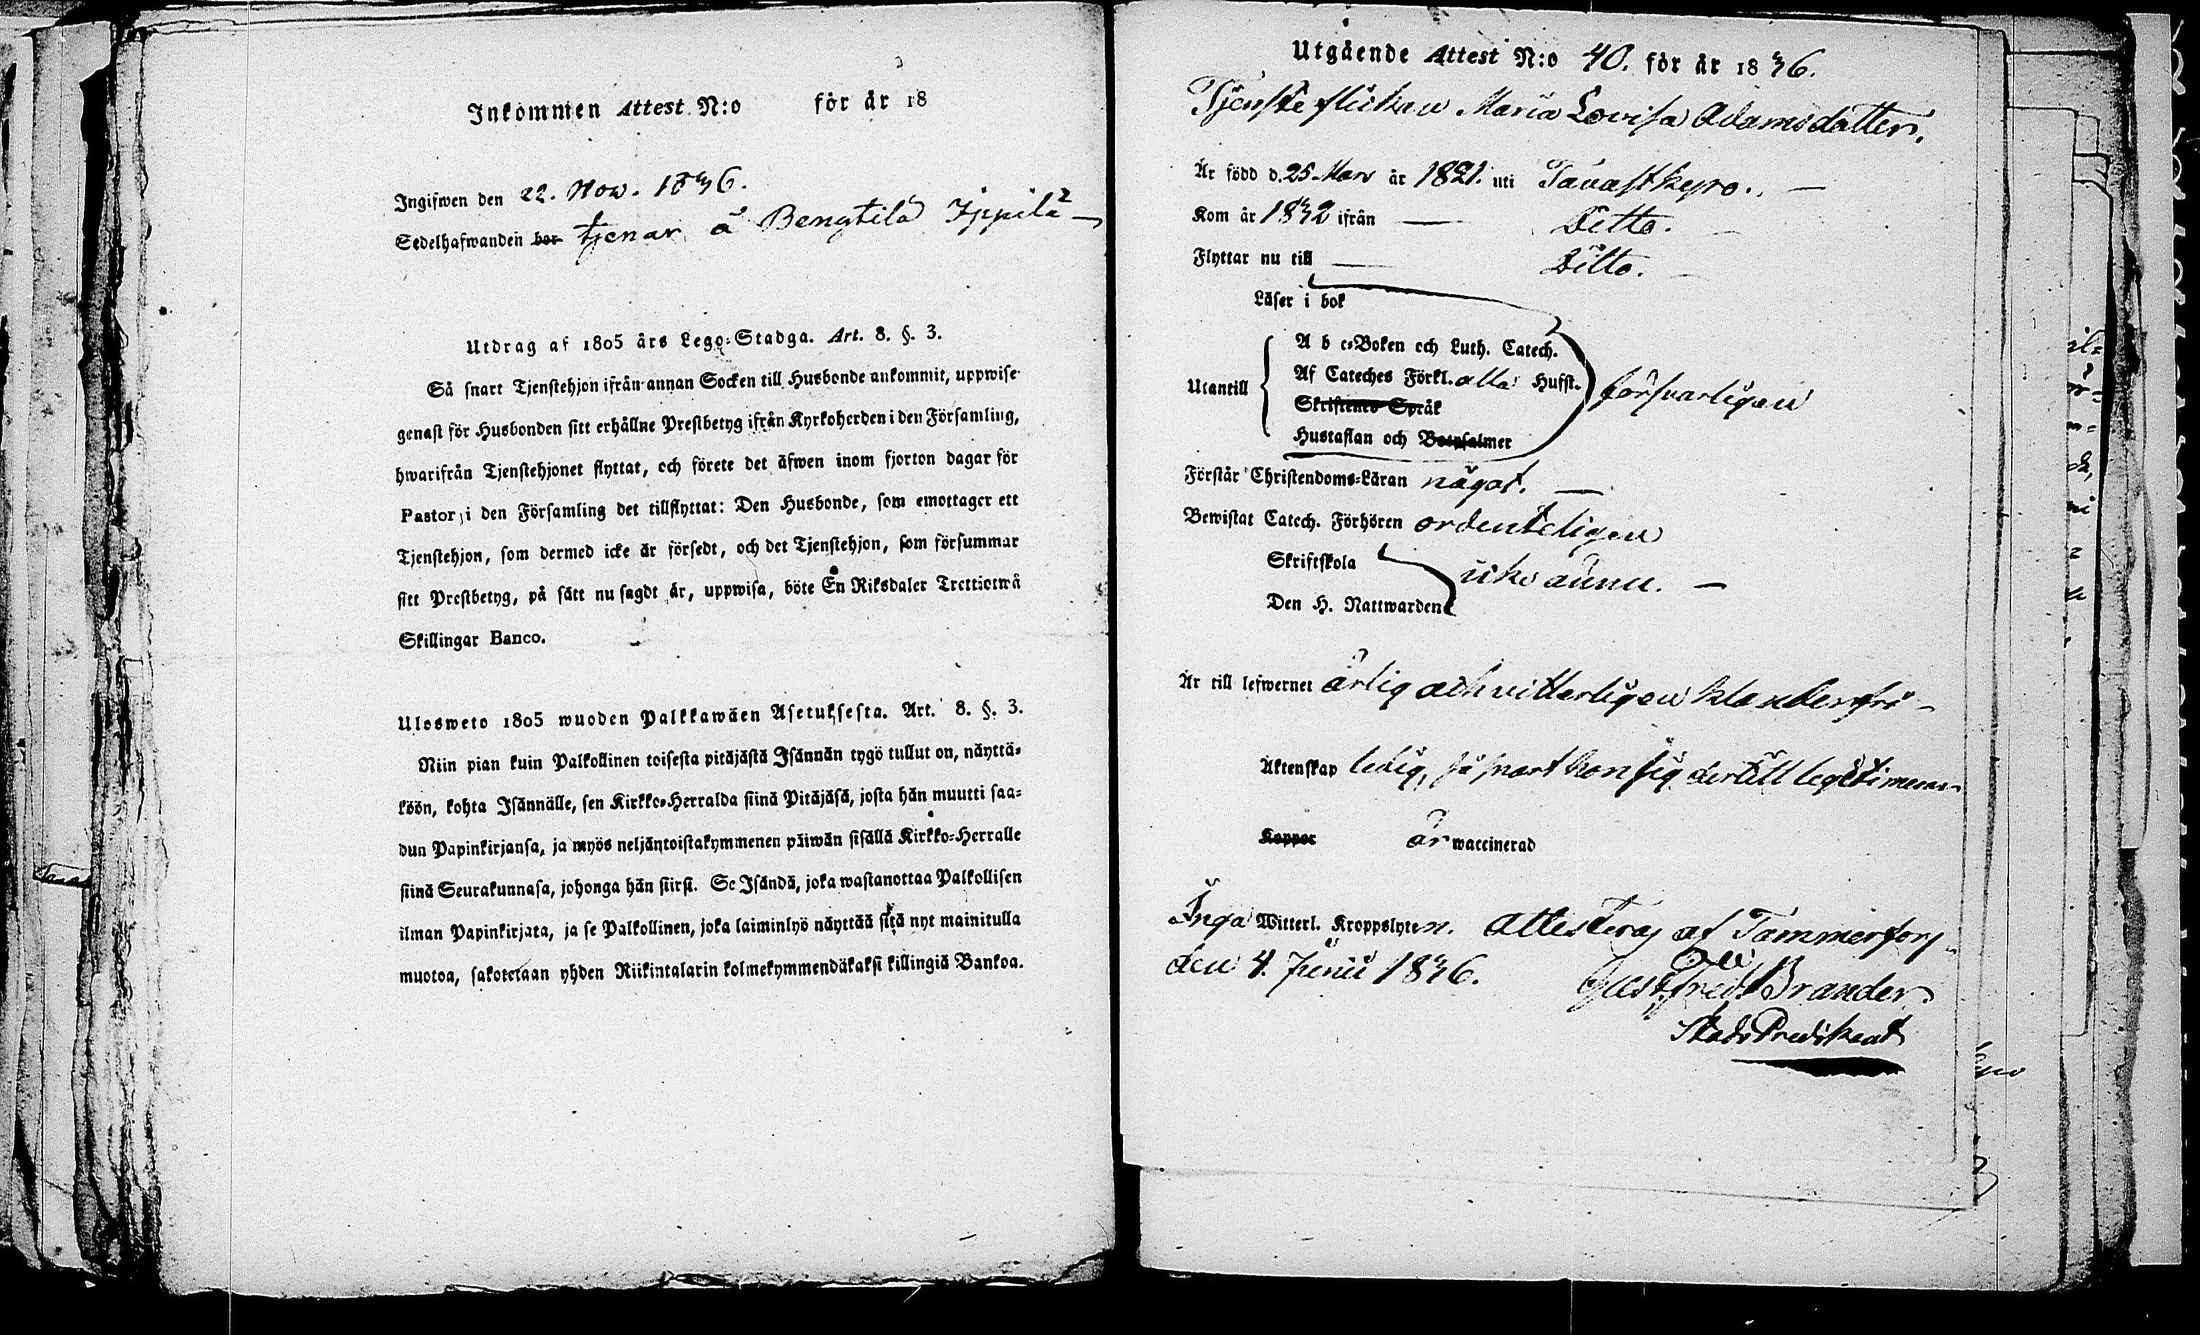 Inkommen Attest N:o för år 18
Ingifwen den 22. Nov. 1836.
Sedelhafwanden bor tjenar å Bengtilä Yppilä
Utdrag af 1805 års Lego-Stadga. Art. 8. §. 3.
Så snart Tjenstehjon ifrån annan Socken till Husbonde ankommit, uppwise
genast för Husbonden sitt erhållne Prestbetyg ifrån Kyrkoherden i den Församling,
hwarifrån Tjenstehjonet flyttat, och förete det äfwen inom fjorton dagar för
Pastor, i den Församling det tillflyttat: Den Husbonde, som emottager ett
Tjenstehjon, som dermed icke är försedt, och det Tjenstehjon, som försummar
sitt Prestbetyg, på sätt nu sagdt är, uppwisa, böte En Riksdaler Trettiotwå
Skillingar Banco.
Ulosweto 1805 wuoden Palkkawäen Asetuksesta. Art. 8. §. 3.
Niin pian kuin Palkollinen toisesta pitäjästä Isännän tygö tullut on, näyttä-
köön, kohta Isännälle, sen Kirkko-Herralda siinä Pitäjäsä, josta hän muutti saa-
dun Papinkirjansa, ja myös neljäntoistakymmenen päiwän sisällä Kirkko-Herralle
siinä Seurakunnasa, johonga hän siirsi. Se Isändä, joka wastanottaa Palkollisen
ilman Papinkirjata, ja se Palkollinen, joka laiminlyö näyttää sitä nyt mainitulla
muotoa, sakotetaan yhden Riikintalarin kolmekymmendäkaksi killingiä Bankoa.
Utgående Attest N:o 40. för år 1836.
Tjensteflickan Maria Lovisa Adamsdatter.
Är född d. 25 Mars år 1821. uti Tavastkyro.
Kom år 1832 ifrån — Ditto.
Flyttar nu till — Ditto.
Läser i bok
Utantill
A b c-Boken och Luth. Catech.
Af Cateches Förkl. alla Hufst. försvarligen
Skriftenes Språk
Hustaflan och Botpsalmer
Förstår Christendoms-Läran något. —
Bewistat Catech. Förhören ordenteligen
Skriftskola
icke ännu. —
Den H. Nattwarden
Är till lefwernet ärlig och vitterligen klanderfri —
Äktenskap ledig, så snart hon sig dertill legitimerar
Koppor är waccinerad
Inga Witterl. Kroppslyten. Attesteras af Tammerfors
den 4. Junii 1836.
Gust. Fred. Brander
StadsPredikant